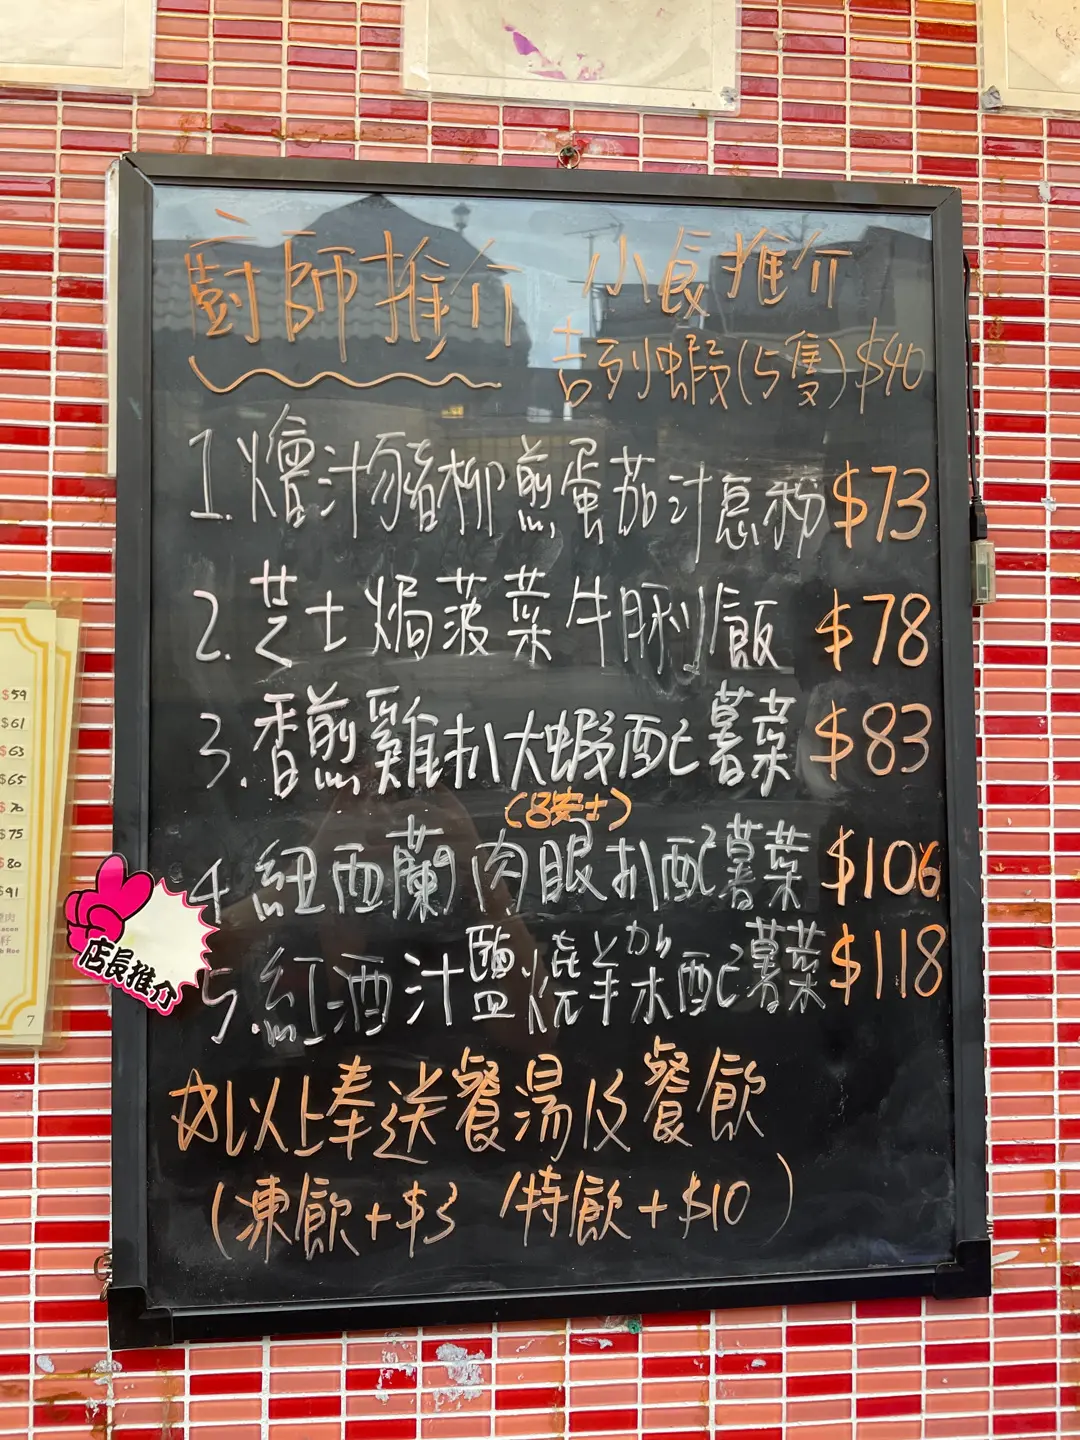 廚師推介
小食推介
吉列蝦(5隻)$40
1.燴汁豬柳煎蛋茄汁意粉$73
2.芝士焗菠菜牛脷飯 $78
3.香煎雞扒大蝦配薯菜$83
(8安士)
4.紐西蘭肉眼扒配薯菜$106
5.紅酒汁鹽燒羊架配薯菜$118
以上奉送餐湯及餐飲
(凍飲+$3 /特飲+$10)
店長推介
$59
$61
$63
$65
$70
$75
$80
$91
7